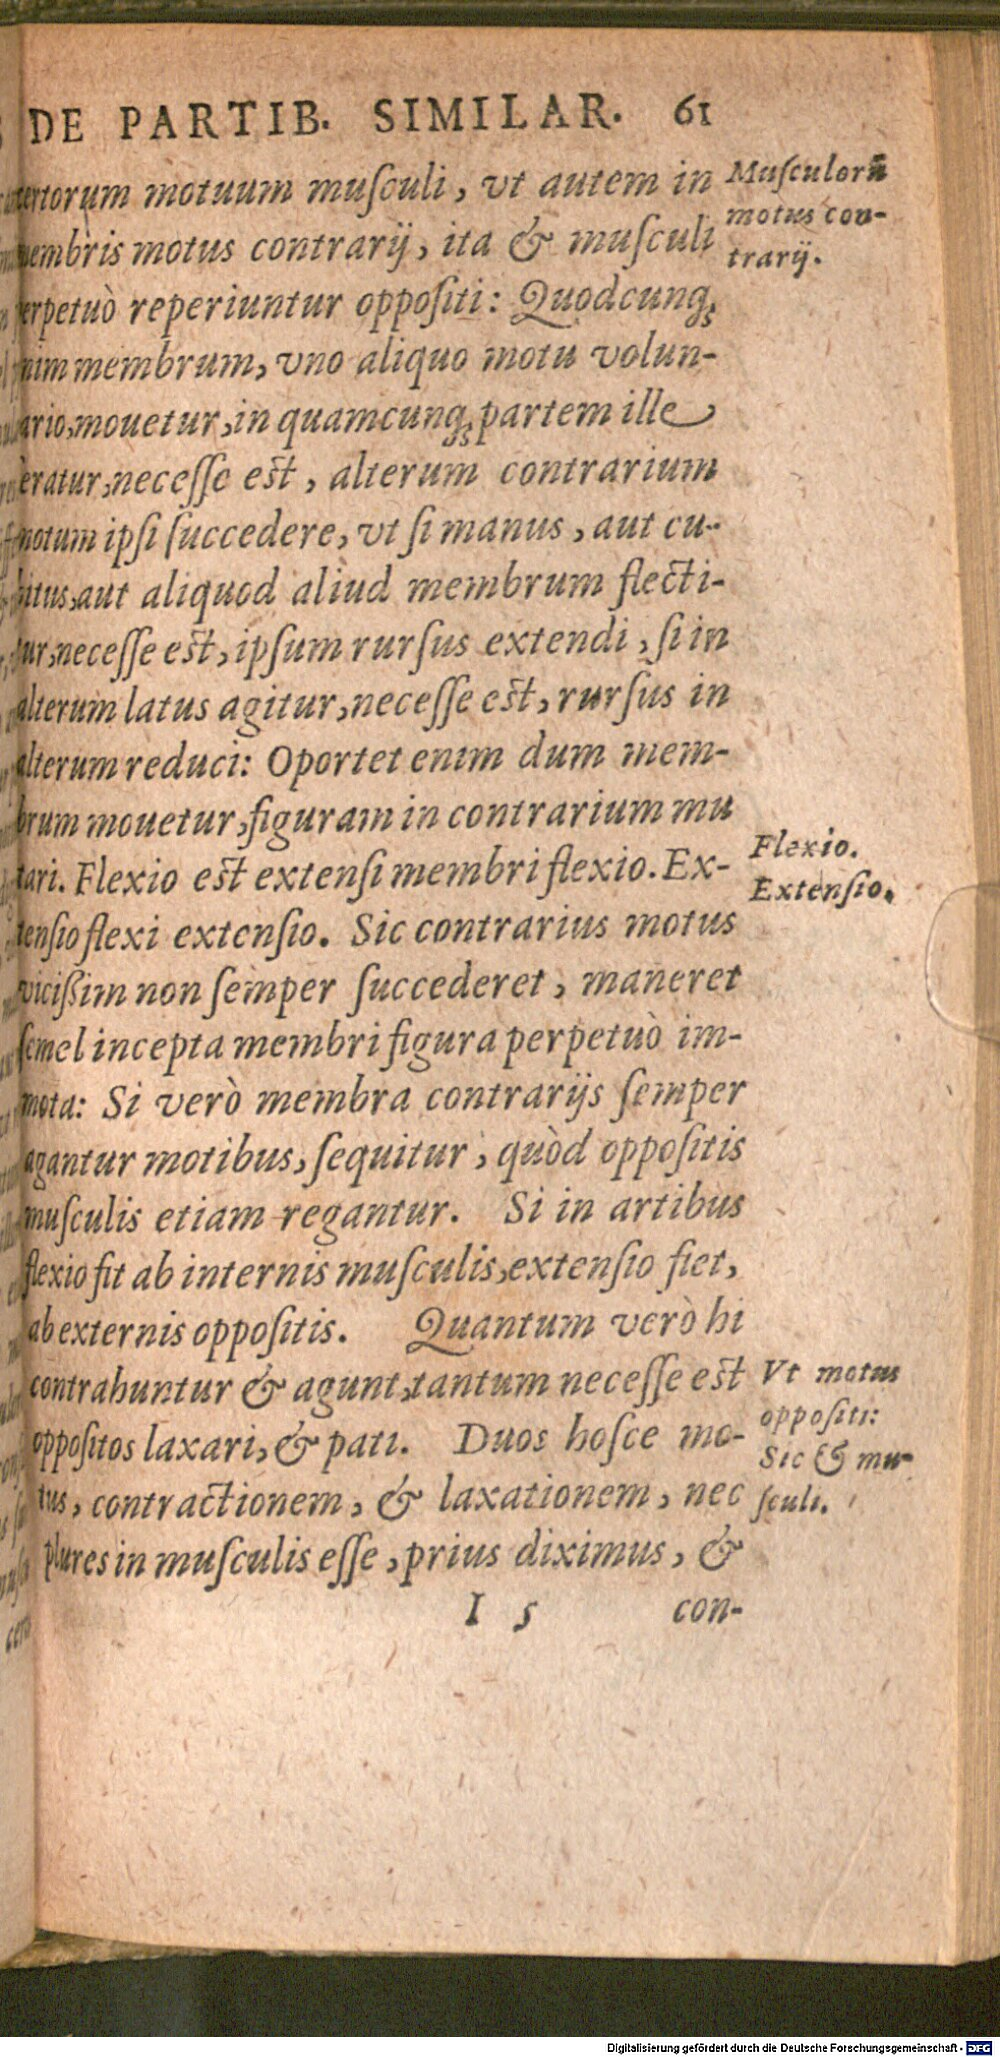 DE PARTIB. SIMILAR. 61
motuum muſculi, vt autem in
membris motus contrarij, ita & muſculi
perpetuò reperiuntur oppoſiti: Quodcunq;
membrum, vno aliquo motu volun-
mouetur, in quamcunq; partem ille
neceſſe est, alterum contrarium
motum ipſi ſuccedere, vt ſi manus, aut cu-
bitus, aut aliquod aliud membrum flecti-
tur, neceſſe est, ipſum rurſus extendi, ſi in
alterum latus agitur, neceſſe est, rurſus in
alterum reduci: Oportet enim dum mem-
brum mouetur, figuram in contrarium mu
tari. Flexio est extenſi membri flexio. Ex-
tenſio flexi extenſio. Sic contrarius motus
viciſsim non ſemper ſuccederet, maneret
ſemel incepta membri figura perpetuò im-
mota: Si verò membra contrarijs ſemper
agantur motibus, ſequitur, quòd oppoſitis
muſculis etiam regantur. Si in artibus
flexio fit ab internis muſculis, extenſio fiet,
ab externis oppoſitis. Quantum verò hi
contrahuntur & agunt, tantum neceſſe est
oppoſitos laxari, & pati. Duos hoſce mo-
tus, contractionem, & laxationem, nec
plures in muſculis eſſe, prius diximus, &
I 5 con-
Muſculorũ
motus con-
trarij.
Flexio.
Extenſio.
Vt motus
oppoſiti:
Sic & mu-
ſculi.
Digitalisierung gefördert durch die Deutsche Forschungsgemeinschaft - DFG